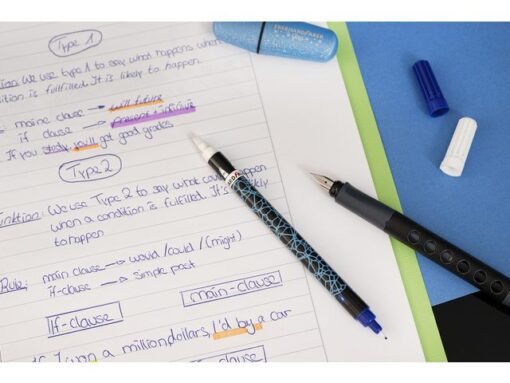 Type 1
We use type 1 to say what happens when
condition is fullfilled. It is likely to happen
main clause → will future
if clause →
If you study, you'll get good grades
Type 2
Funktion: We use Type 2 to say what could happen
when a condition is fulfilled. It is likely
to happen
Rule: main clause → would /could /(might)
if-clause → simple past
main-clause
If-clause
If I won a million dollars, I'd by a car
EBERHARD FABER